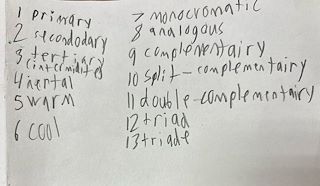 1 primary
2 secondodary
3 tertiary
(intermidited)
4 nertal
5 warm
6 cool
7 monocromatic
8 analogous
9 complementairy
10 split-complementairy
11 double-complementairy
12 triad
13 triade